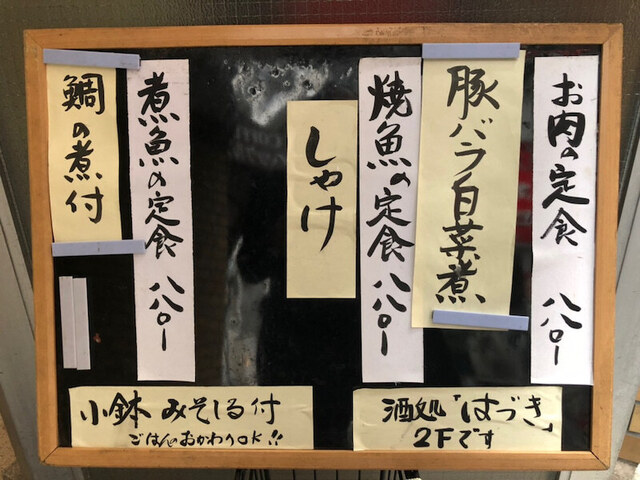 お肉の定食 八八〇ー
豚バラ白菜煮
焼魚の定食 八八〇ー
しゃけ
煮魚の定食 八八〇ー
鯛の煮付
小鉢 みそしる付
ごはんのおかわりOK!!
酒処「はづき」
2Fです